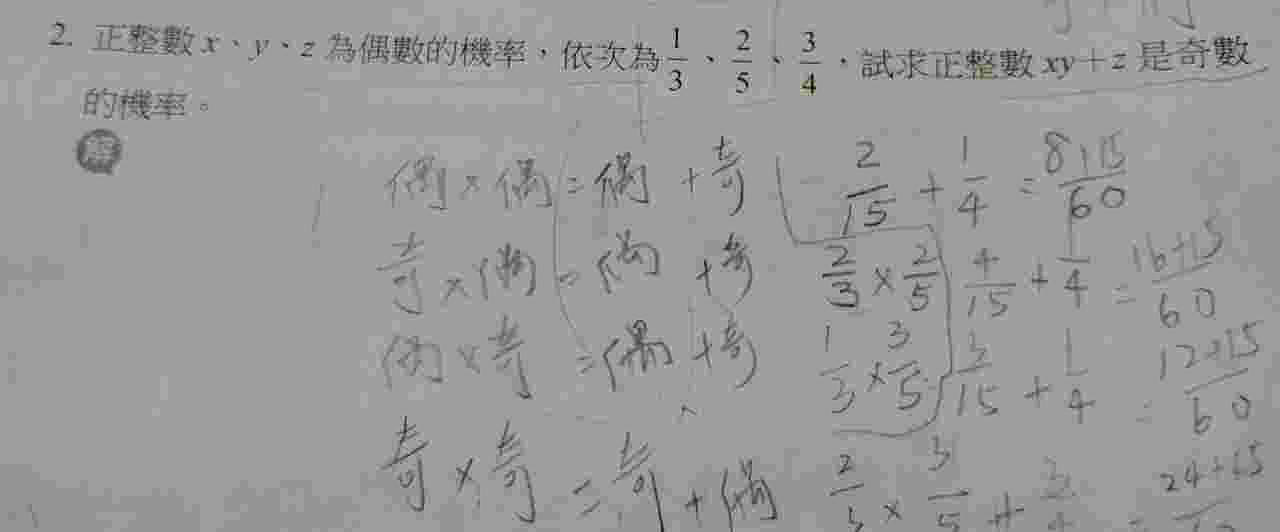 2. 正整數 x、y、z 為偶數的機率，依次為 1/3、2/5、3/4，試求正整數 xy+z 是奇數
的機率。
解
偶×偶=偶+奇 2/15 + 1/4 = 8+15/60
奇×偶=偶+奇 2/3 × 2/5 4/15 + 1/4 = 16+15/60
偶×奇=偶+奇 1/3 × 3/5 3/15 + 1/4 = 12+15/60
奇×奇=奇+偶 2/3 × 3/5 + = 24+15